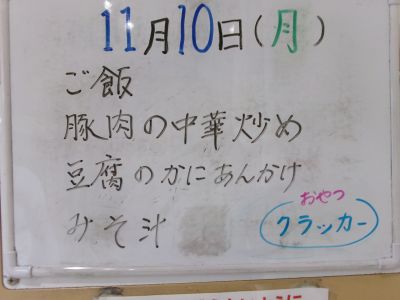 11月10日(月)
ご飯
豚肉の中華炒め
豆腐のかにあんかけ
みそ汁
おやつ
クラッカー